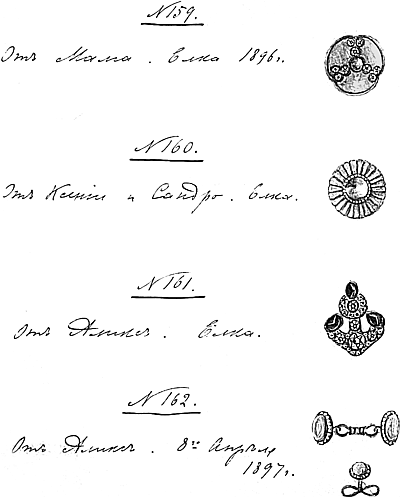 № 159.
Отъ Мама. Елка 1896 г.
№ 160.
Отъ Ксеніи и Сандро. Елка.
№ 161.
Отъ Аликсъ. Елка.
№ 162.
Отъ Аликсъ. 8го Апрѣля
1897 г.